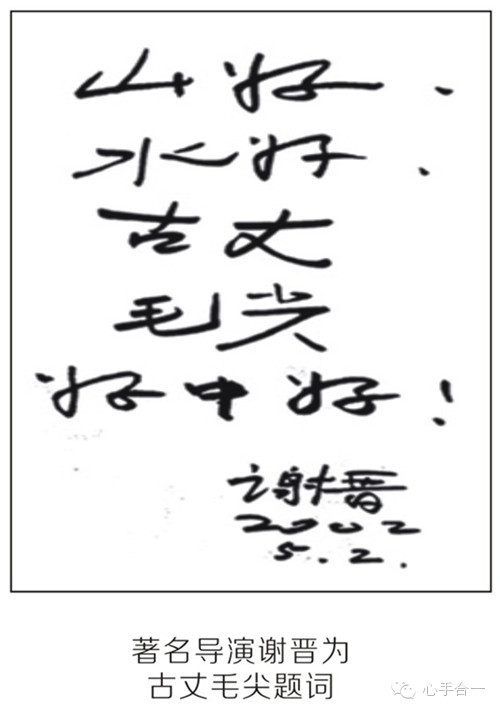 山好、
水好、
古丈
毛尖
好中好!
谢晋
2002
5.2.
著名导演谢晋为
古丈毛尖题词
心手合一